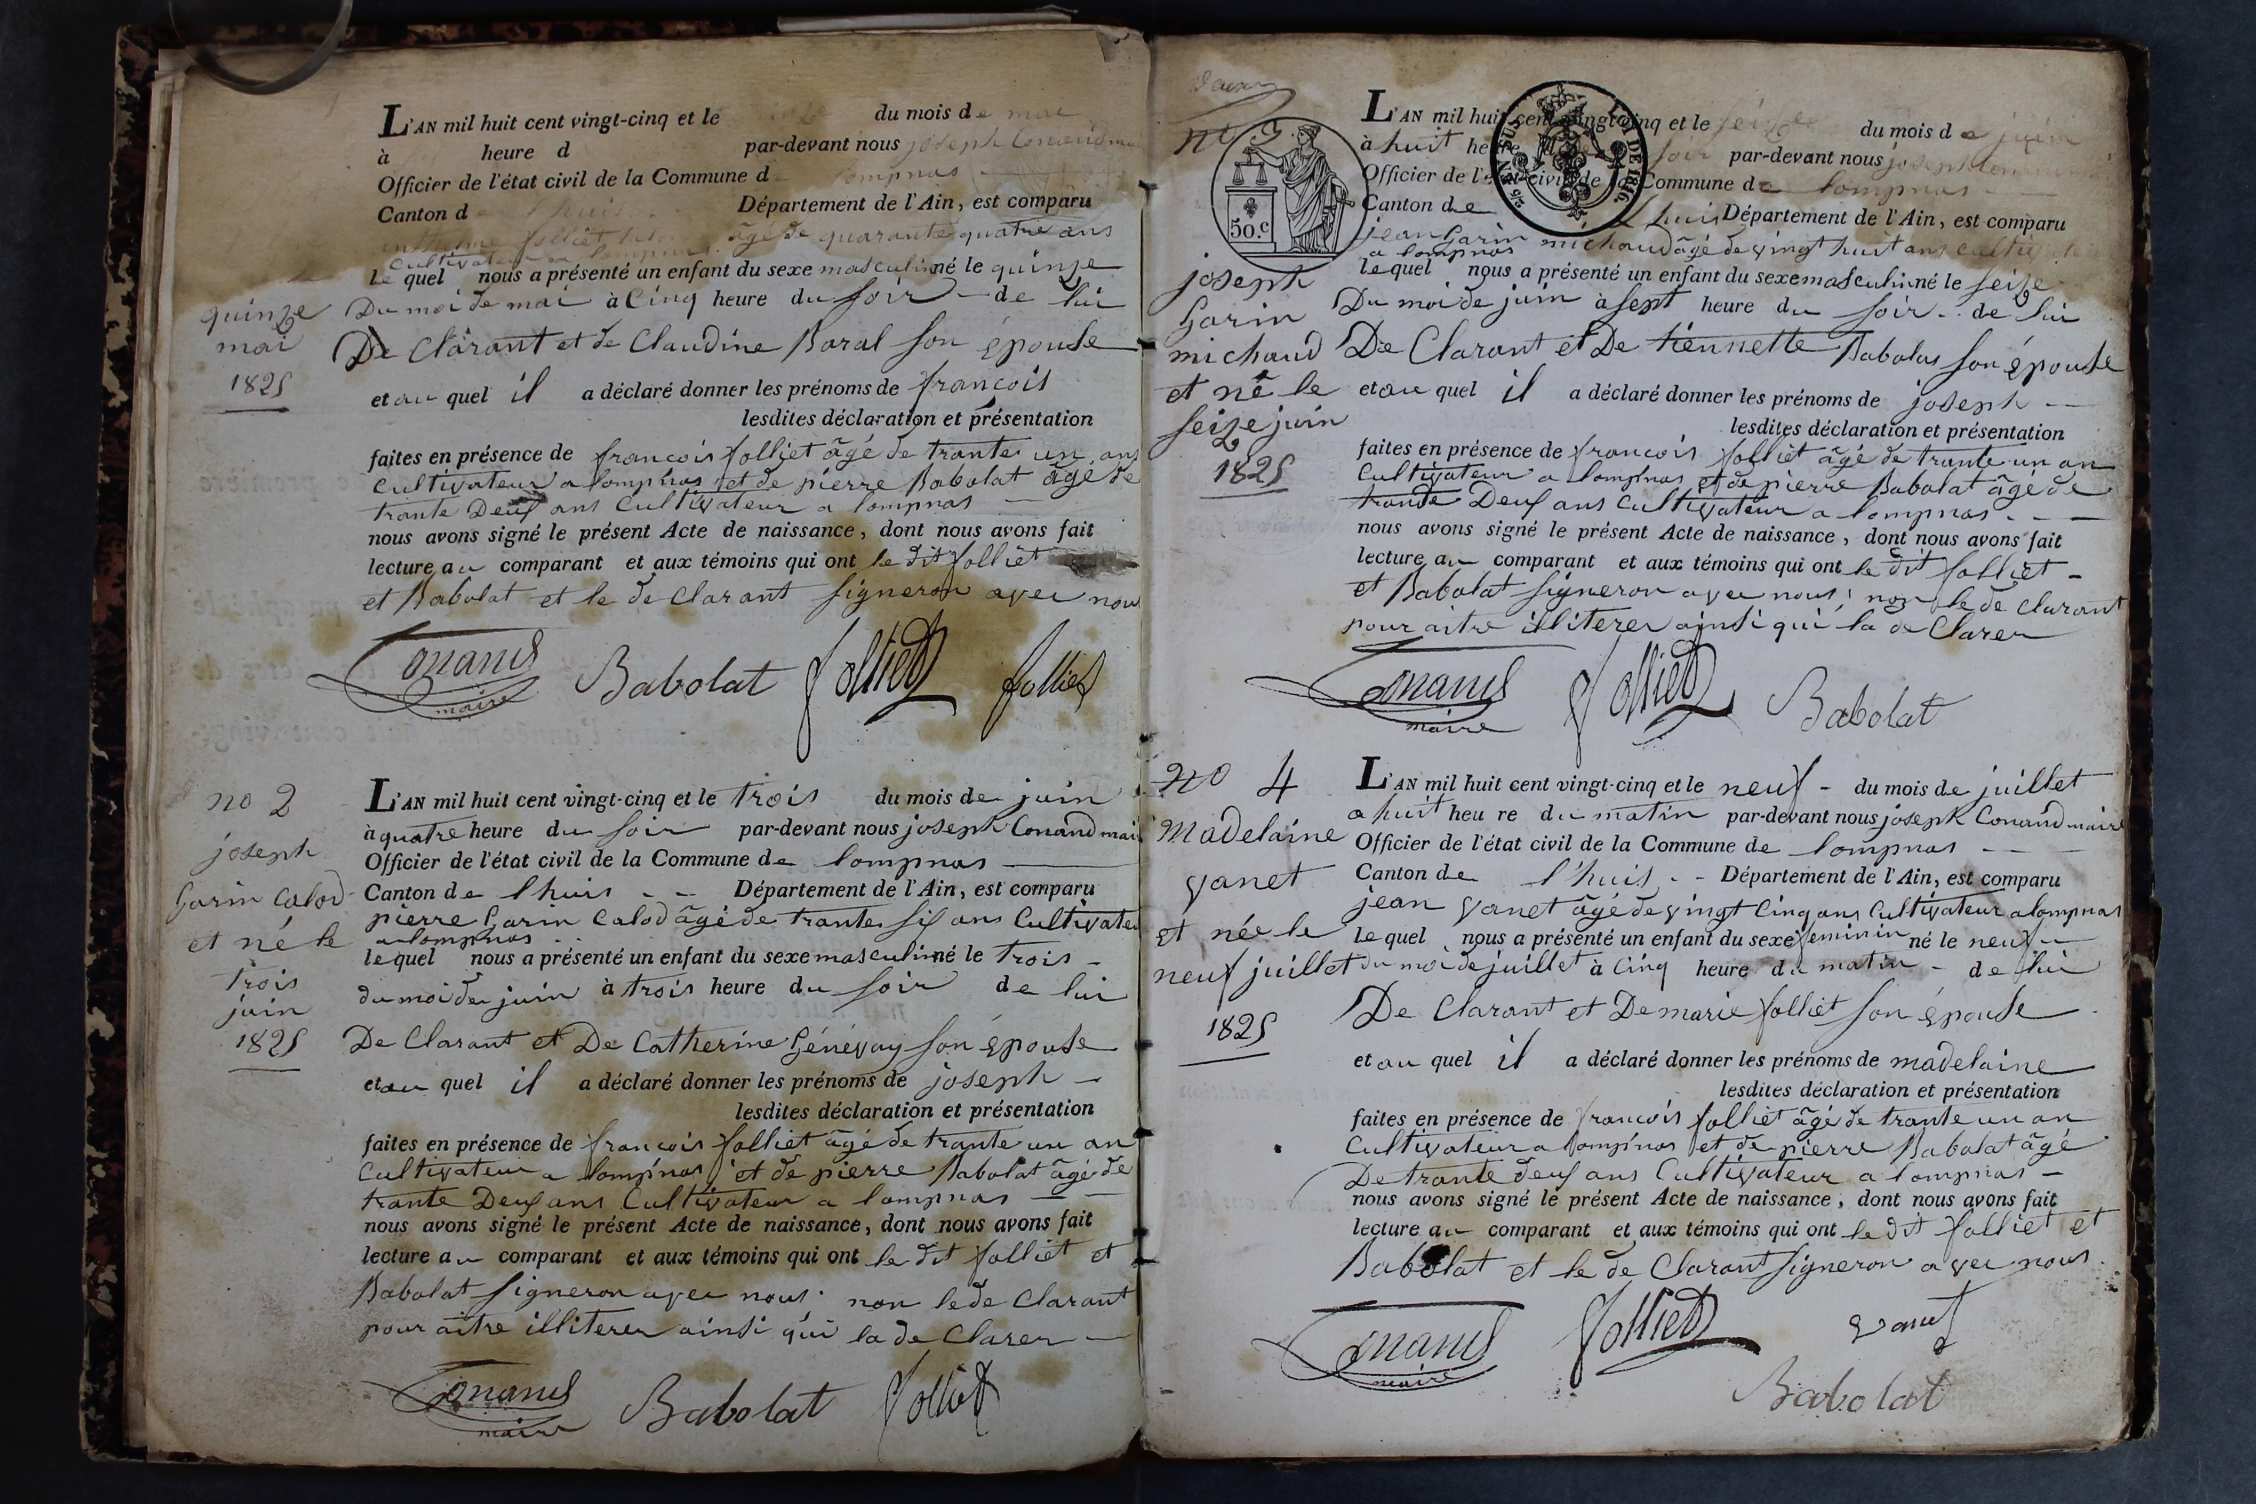 L'AN mil huit cent vingt-cinq et le du mois de mai
à heure d par-devant nous joseph Conand
Officier de l'état civil de la Commune d lompnas
Canton d lhuis Département de l'Ain, est comparu
folliet âgé de quarante quatre ans
Cultivateur a lompnas
le quel nous a présenté un enfant du sexe masculin né le quinze
Du moi de mai à Cinq heure du soir - de lui
De Clarant et de Claudine Baral son épouse
et au quel il a déclaré donner les prénoms de francois
lesdites déclaration et présentation
faites en présence de francois folliet âgé de trante un ans
Cultivateur a lompnas et de pierre Babolat âgé de
trante Deux ans Cultivateur a lompnas
nous avons signé le présent Acte de naissance, dont nous avons fait
lecture au comparant et aux témoins qui ont le dit folliet
et Babolat et le de clarant signeron avec nous
quinze
mai
1825
Conand
maire
Babolat
folliet
folliet
no 2
joseph
Garin Calod
et né le
trois
juin
1825
L'AN mil huit cent vingt-cinq et le trois du mois de juin
à quatre heure du soir par-devant nous joseph Conand maire
Officier de l'état civil de la Commune de lompnas
Canton de lhuis - - Département de l'Ain, est comparu
pierre Garin Calod âgé de trante six ans Cultivateu
a lompnas
le quel nous a présenté un enfant du sexe masculin né le trois -
du moi de juin à trois heure du soir de lui
De Clarant et De Catherine Génévay son épouse
et au quel il a déclaré donner les prénoms de joseph -
lesdites déclaration et présentation
faites en présence de francois folliet âgé de trante un an
Cultivateur a lompnas et de pierre Babolat âgé de
trante Deux ans Cultivateur a lompnas
nous avons signé le présent Acte de naissance, dont nous avons fait
lecture au comparant et aux témoins qui ont le dit folliet et
Babolat signeron avec nous non le de Clarant
pour aitre illiterer ainsi qui la de Clarer -
Conand
maire
Babolat
folliet
no 3
50.c
LOI DE 1816.
joseph
Garin
michaud
et né le
seize juin
1825
L'AN mil huit cent vingt-cinq et le seize du mois de juin
à huit heure soir par-devant nous joseph Conand
Officier de l'état civil de la Commune de lompnas
Canton de lhuis Département de l'Ain, est comparu
jean Garin michaud âgé de vingt huit ans cultiv
a lompnas
le quel nous a présenté un enfant du sexe masculin né le seize
Du moi de juin à sept heure du soir - de lui
De Clarant et De tiennette Babolas son épouse
et au quel il a déclaré donner les prénoms de joseph -
lesdites déclaration et présentation
faites en présence de francois folliet âgé de trante un an
Cultivateur a lompnas et de pierre Babolat âgé de
trande Deux ans Cultivateur a lompnas - -
nous avons signé le présent Acte de naissance, dont nous avons fait
lecture au comparant et aux témoins qui ont le dit folliet -
et Babolat signeron avec nous non le de clarant
pour aitre illiterer ainsi qui la de Clarer
Conand
maire
folliet
Babolat
no 4
Madelaine
vanet
et née le
neuf juillet
1825
L'AN mil huit cent vingt-cinq et le neuf - du mois de juillet
a huit heure du matin par-devant nous joseph Conand maire
Officier de l'état civil de la Commune de lompnas - -
Canton de l'huis - - Département de l'Ain, est comparu
jean vanet âgé de vingt Cinq ans Cultivateur a lompnas
le quel nous a présenté un enfant du sexe feminin né le neuf -
du moi de juillet à Cinq heure du matin - de lui
De Clarant et De marie folliet son épouse
et au quel il a déclaré donner les prénoms de madelaine
lesdites déclaration et présentation
faites en présence de francois folliet âgé de trante un an
Cultivateur a lompnas et de pierre Babolat âgé
De trante deux ans Cultivateur a lompnas -
nous avons signé le présent Acte de naissance, dont nous avons fait
lecture au comparant et aux témoins qui ont le dit folliet et
Babolat et le de Clarant signeron avec nous
Conand
maire
folliet
vanet
Babolat